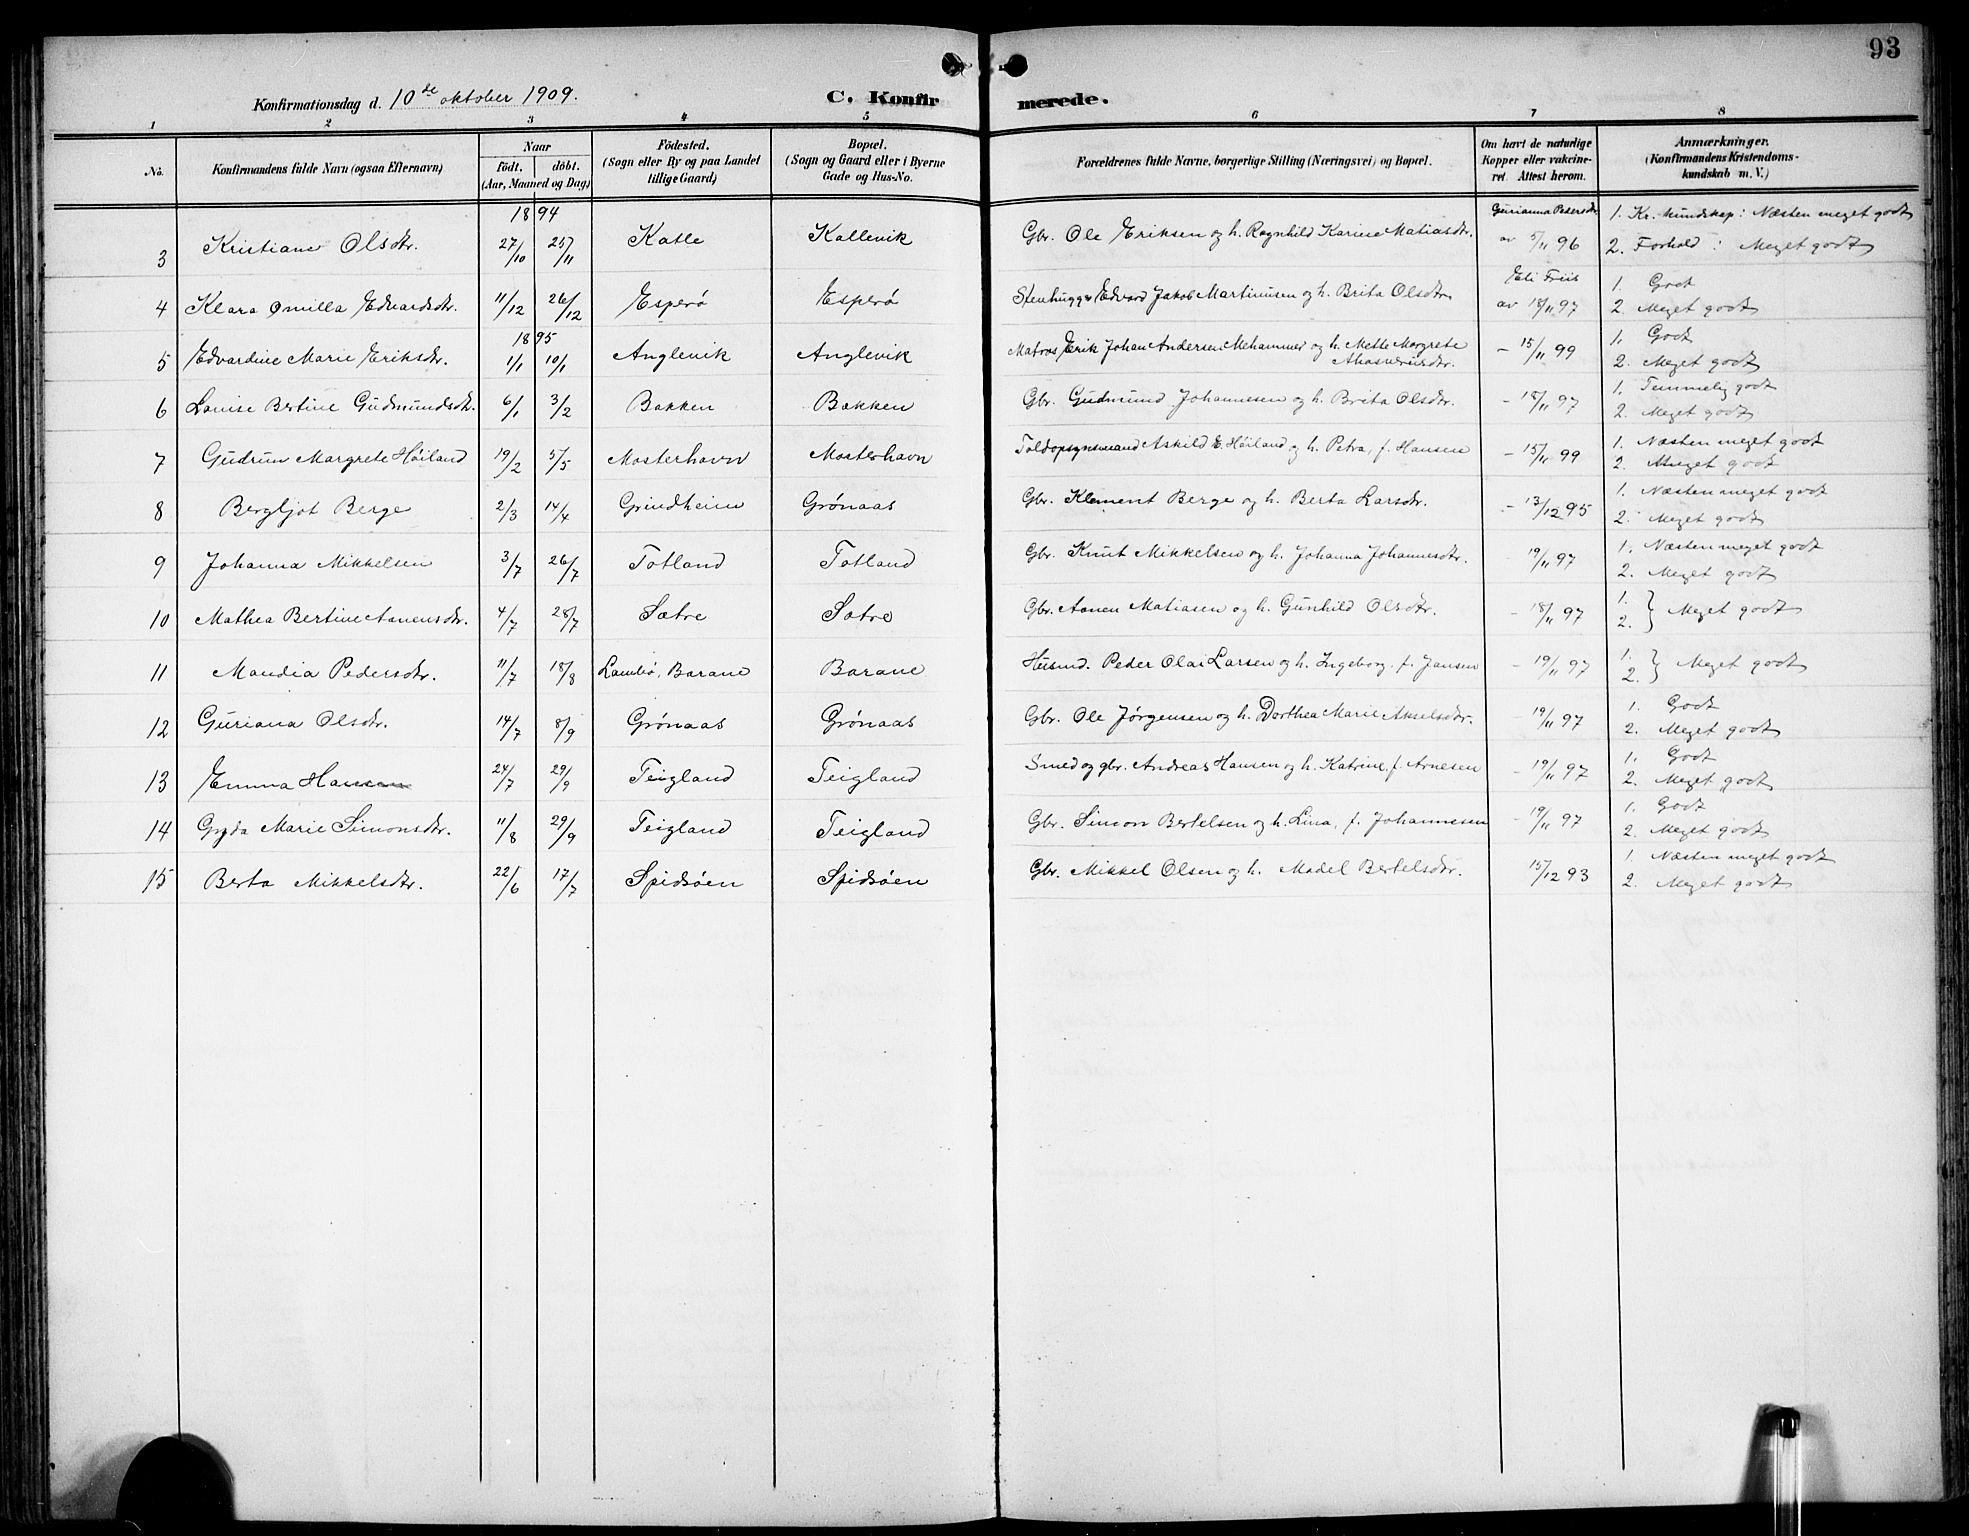 93
Konfirmationsdag d. 10de oktober 1909. C. Konfirmerede.
1 2 3 4 5 6 7 8
No. Konfirmandens fulde Navn (ogsaa Efternavn) Naar født. døbt. (Aar, Maaned og Dag) Fødested. (Sogn eller By og paa Landet tillige Gaard) Bopæl. (Sogn og Gaard eller i Byerne Gade og Hus-No. Forældrenes fulde Navne, borgerlige Stilling (Næringsvei) og Bopæl. Om havt de naturlige Kopper eller vakcineret. Attest herom. Anmærkninger. (Konfirmandens Kristendomskundskab m. V.)
1894
3 Kristiane Olsdtr. 27/10 25/11 Katle Kallevik Gbr. Ole Eriksen og h. Ragnhild Karine Matiasdtr. Gurianna Pedersdtr. av 5/11 96 1. Kr. kundskap: Næsten meget godt
2. Forhold : Meget godt
4 Klara Omilla Edvardsdtr. 11/12 26/12 Esperø Esperø Stenhugger Edvard Jakob Martinusen og h. Brita Olsdtr. Eli Friis av 18/11 97 1. Godt
2. Meget godt
1895
5 Edvardine Marie Eriksdtr. 1/1 10/1 Anglevik Anglevik Matros Erik Johan Andersen Mehammer og h. Mette Margrete Ahasverusdtr. - 15/11 99 1. Godt
2. Meget godt
6 Louise Bertine Gudmundsdtr. 6/1 3/2 Bakken Bakken Gbr. Gudmund Johannesen og h. Brita Olsdtr. - 18/11 97 1. Temmelig godt
2. Meget godt
7 Gudrun Margrete Høiland 19/2 5/5 Mosterhavn Mosterhavn Toldopsynsmand Askild E. Høiland og h. Petra, f. Hansen - 15/11 99 1. Næsten meget godt
2. Meget godt
8 Bergljot Berge 2/3 14/4 Grindheim Grønaas Gbr. Klement Berge og h. Berta Larsdtr. - 13/12 95 1. Næsten meget godt
2. Meget godt
9 Johanna Mikkelsen 3/7 26/7 Totland Totland Gbr. Knut Mikkelsen og h. Johanna Johannesdtr. - 19/11 97 1. Næsten meget godt
2. Meget godt
10 Mathea Bertine Aanensdtr. 4/7 28/7 Sætre Sætre Gbr. Aanen Matiasen og h. Gunhild Olsdtr. - 18/11 97 1. 2. } Meget godt
11 Mandia Pedersdtr. 11/7 18/8 Lambø, Barane Barane Husmd. Peder Olai Larsen og h. Ingeborg f. Jansen - 19/11 97 1. 2. } Meget godt
12 Guriana Olsdtr. 14/7 8/9 Grønaas Grønaas Gbr. Ole Jørgensen og h. Dorthea Marie Akselsdtr. - 19/11 97 1. Godt
2. Meget godt
13 Emma Hansen 24/7 29/9 Teigland Teigland Smed og gbr. Andreas Hansen og h. Katrine, f. Arnesen - 19/11 97 1. Godt
2. Meget godt
14 Gyda Marie Simonsdtr. 11/8 29/9 Teigland Teigland Gbr. Simon Bertelsen og h. Lina, f. Johannesen - 19/11 97 1. Godt
2. Meget godt
15 Berta Mikkelsdtr. 22/6 17/7 Spidsøen Spidsøen Gbr. Mikkel Olsen og h. Madel Bertelsdtr. 15/12 93 1. Næsten meget godt
2. Meget godt